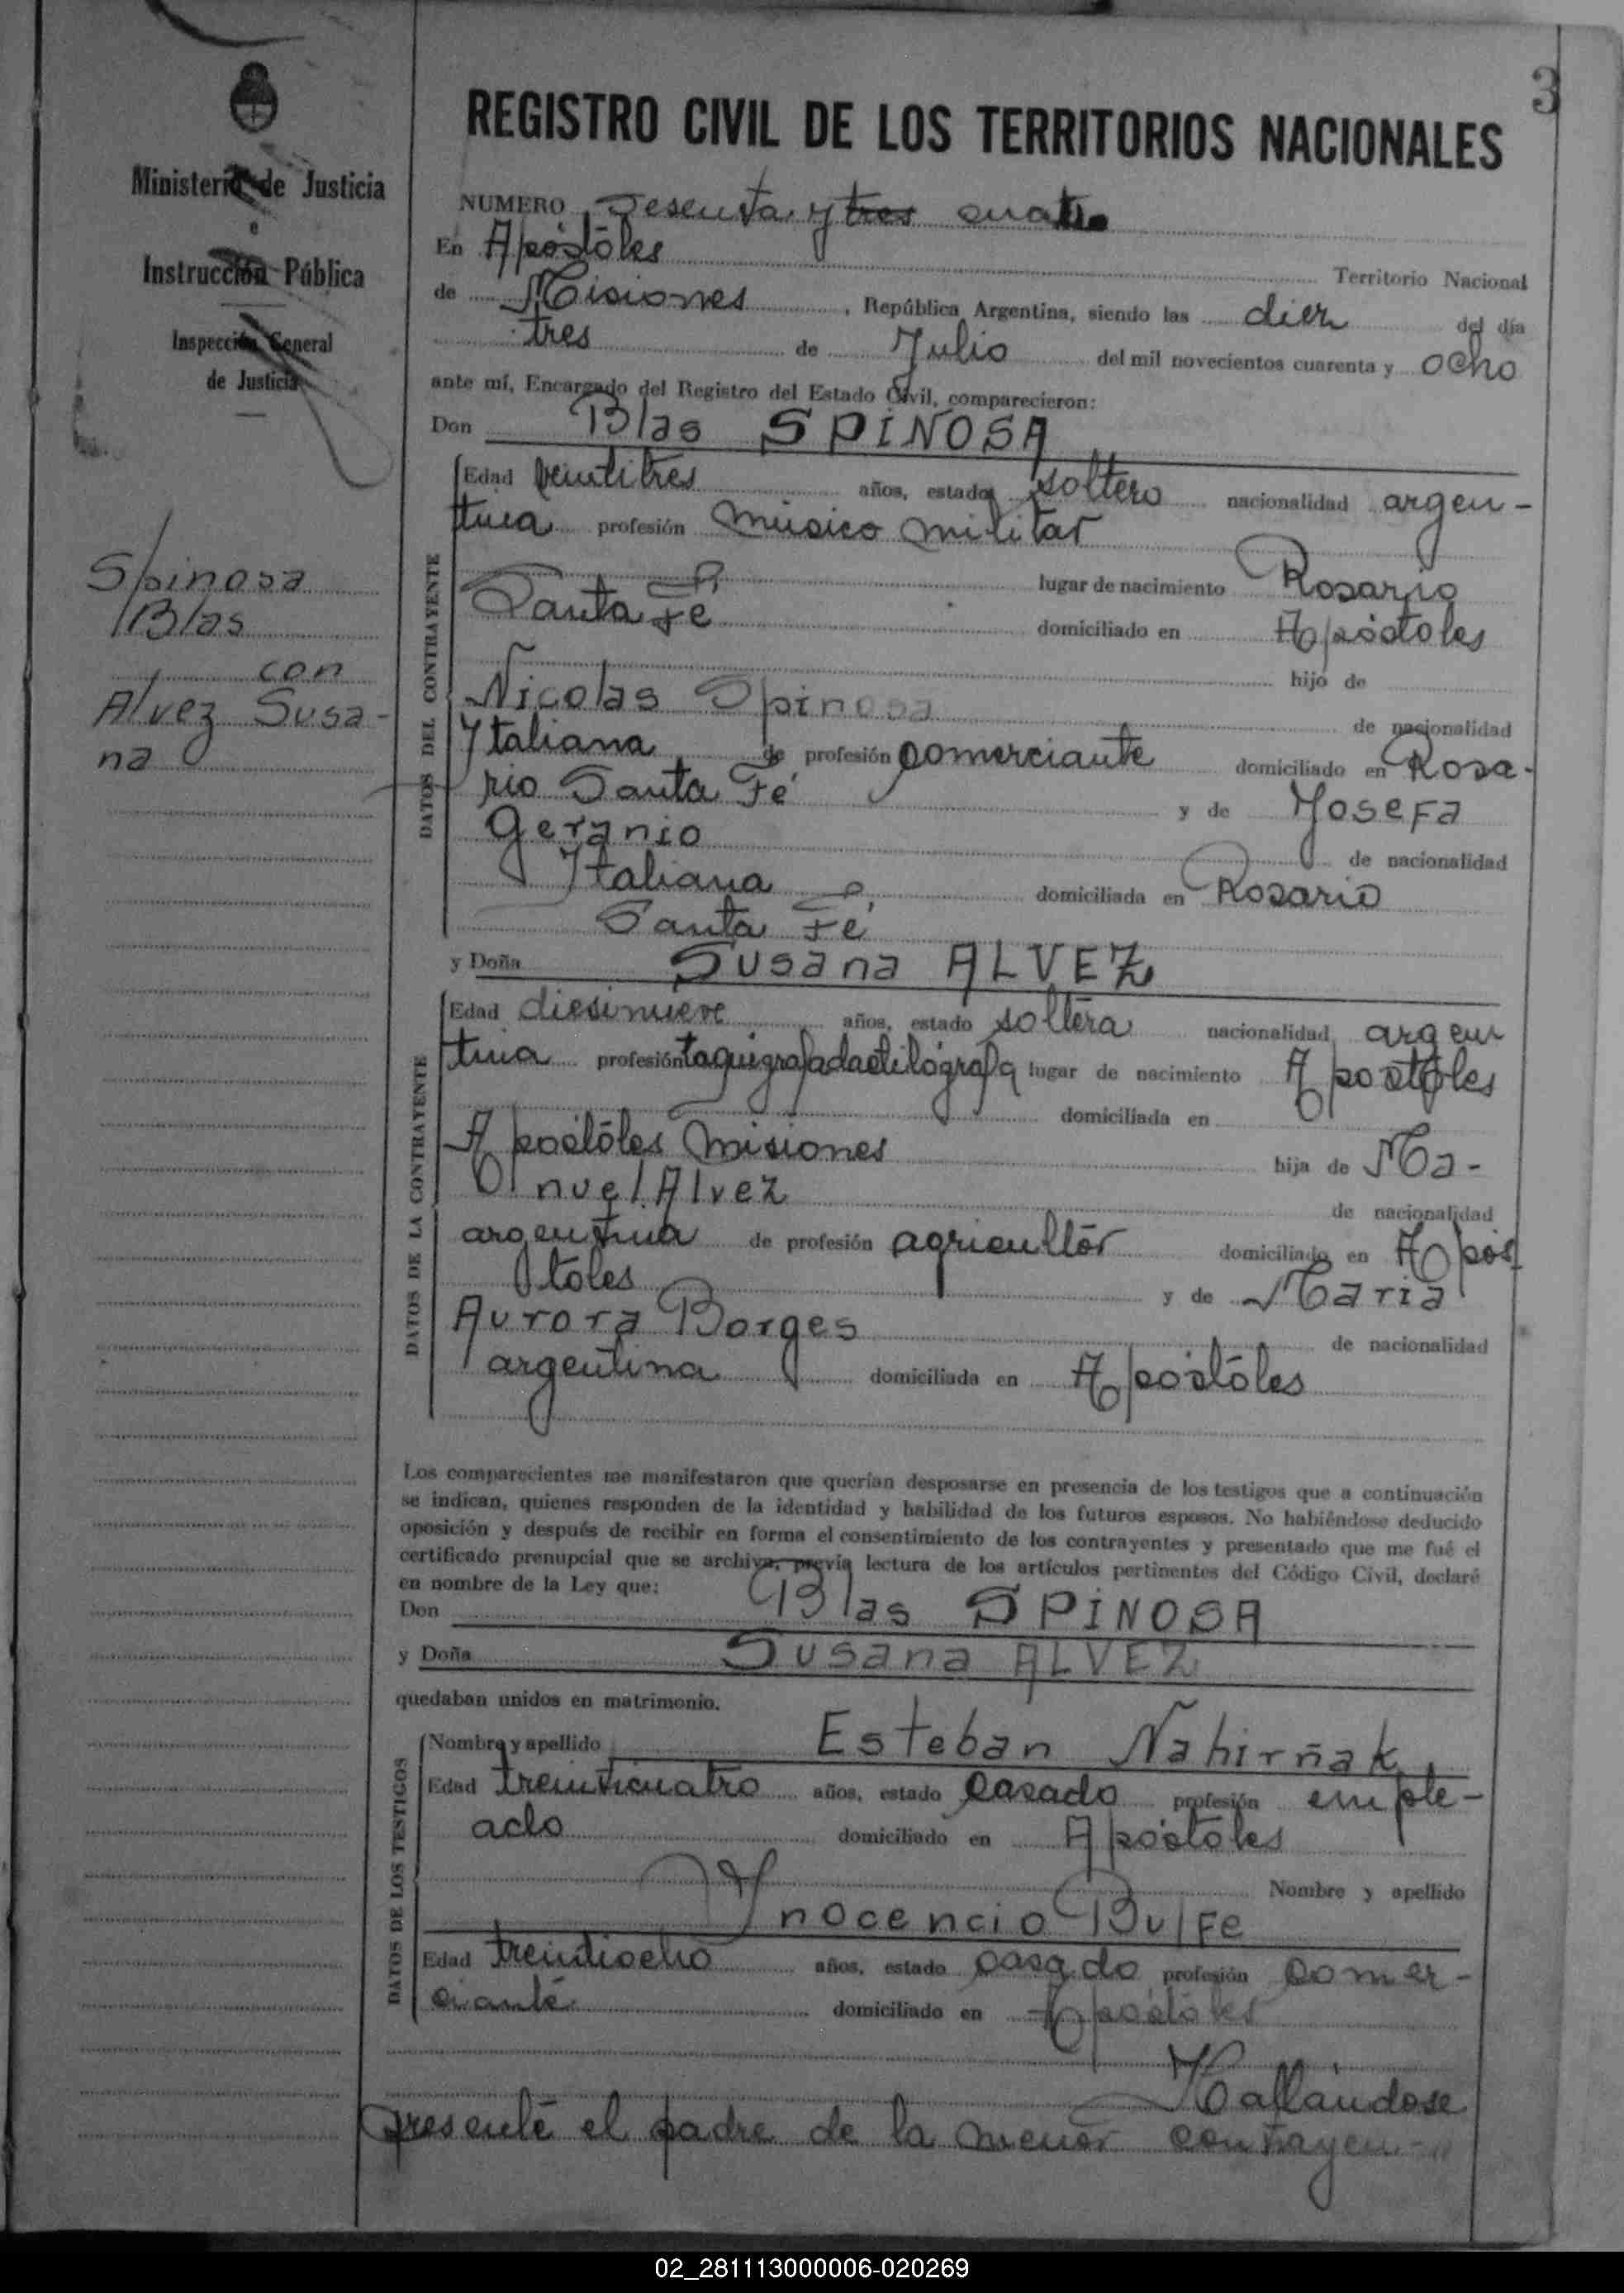 3
Ministerio de Justicia
e
Instrucción Pública
Inspección General
de Justicia
Spinosa
Blas
con
Alvez Susa-
na
REGISTRO CIVIL DE LOS TERRITORIOS NACIONALES
NUMERO Sesenta y tres cuatro
En Apóstoles Territorio Nacional
de Misiones, República Argentina, siendo las diez del día
tres de Julio del mil novecientos cuarenta y ocho
ante mí, Encargado del Registro del Estado Civil, comparecieron:
Don Blas SPINOSA
DATOS DEL CONTRAYENTE
Edad veintitres años, estado soltero nacionalidad argen-
tina profesión músico militar
lugar de nacimiento Rosario
Santa Fé domiciliado en Apóstoles
hijo de
Nicolas Spinosa de nacionalidad
Italiana de profesión comerciante domiciliado en Rosa-
rio Santa Fé y de Josefa
Geranio de nacionalidad
Italiana domiciliada en Rosario
Santa Fé
y Doña Susana ALVEZ
DATOS DE LA CONTRAYENTE
Edad diesinueve años, estado soltera nacionalidad argen
tina profesión taquígrafa dactilógrafa lugar de nacimiento Apóstoles
domiciliada en
Apóstoles Misiones hija de Ma-
nuel Alvez de nacionalidad
argentina de profesión agricultor domiciliado en Após
toles y de Maria
Aurora Borges de nacionalidad
argentina domiciliada en Apóstoles
Los comparecientes me manifestaron que querían desposarse en presencia de los testigos que a continuación
se indican, quienes responden de la identidad y habilidad de los futuros esposos. No habiéndose deducido
oposición y después de recibir en forma el consentimiento de los contrayentes y presentado que me fué el
certificado prenupcial que se archiva, previa lectura de los artículos pertinentes del Código Civil, declaré
en nombre de la Ley que:
Don Blas SPINOSA
y Doña Susana ALVEZ
quedaban unidos en matrimonio.
DATOS DE LOS TESTIGOS
Nombre y apellido Esteban Nahirñak
Edad treinticuatro años, estado casado profesión emple-
ado domiciliado en Apóstoles
Nombre y apellido
Ynocencio Bulfe
Edad treintiocho años, estado casado profesión comer-
ciante domiciliado en Apóstoles
Hallándose
presente el padre de la menor contrayen-
02_281113000006-020269